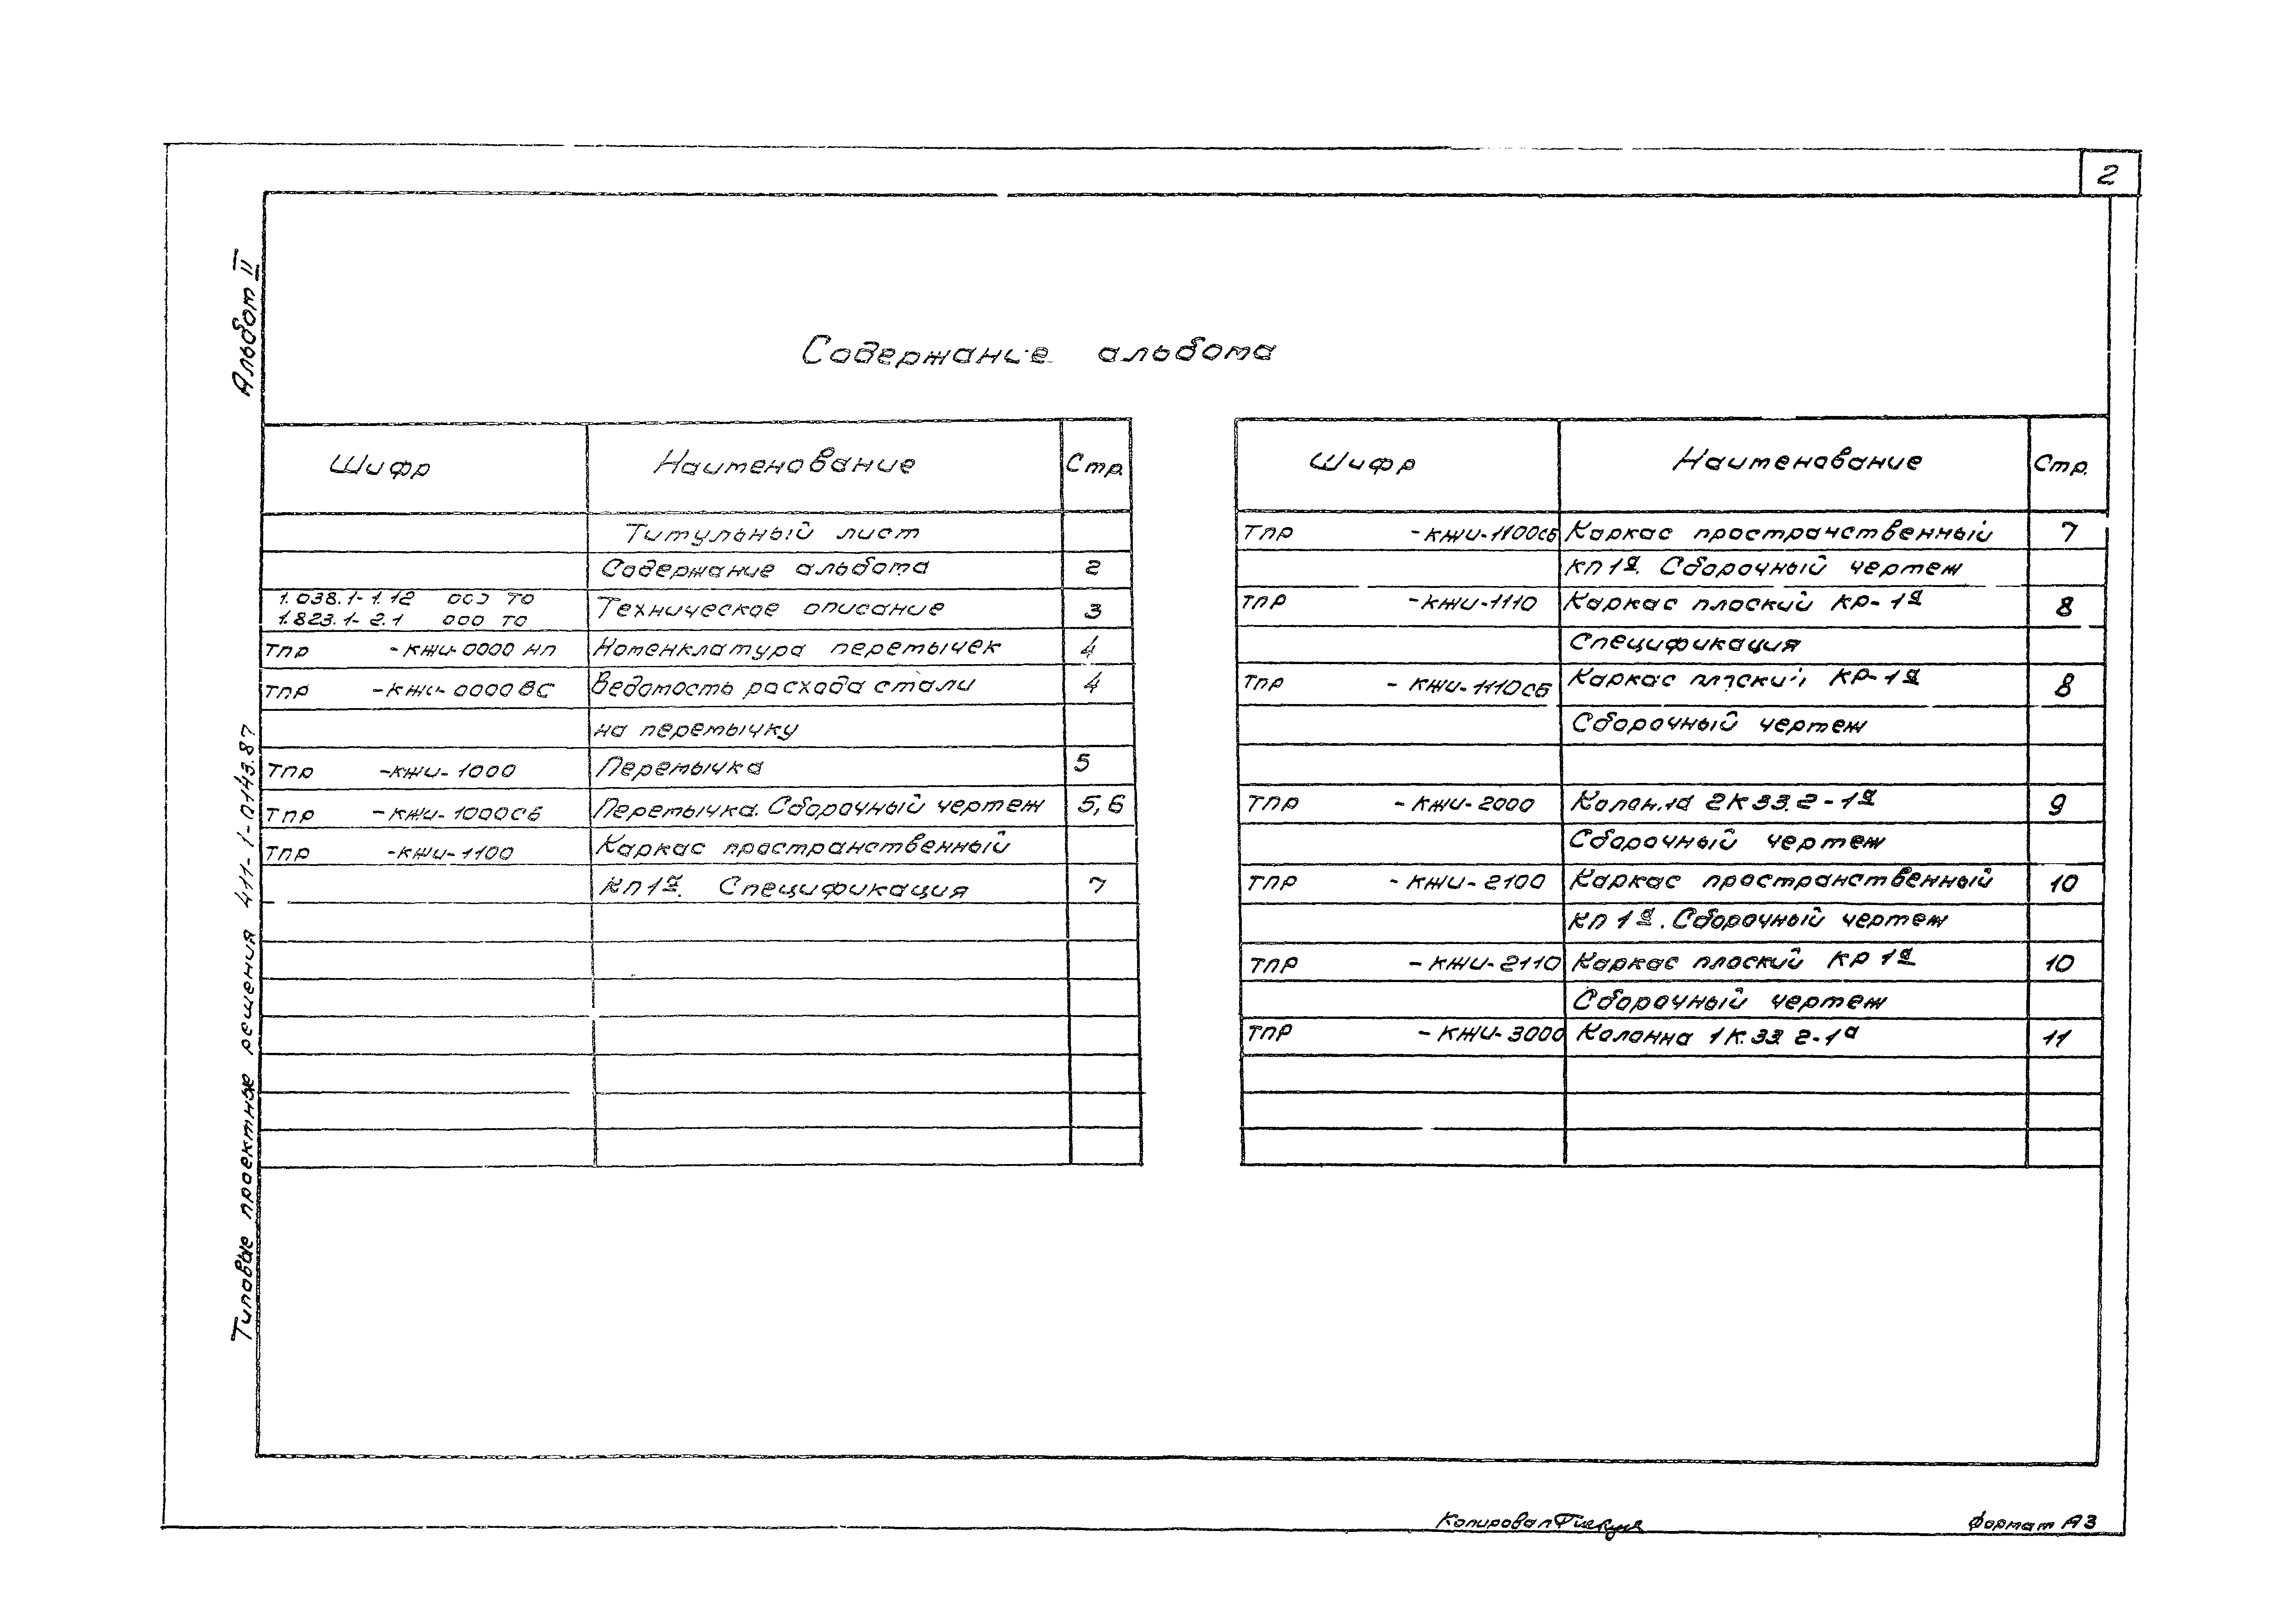 2
Альбом II
Типовые проектные решения 411-1-0143.87
Содержание альбома
Шифр Наименование Стр.
Титульный лист
Содержание альбома 2
1.038.1-1.12 000 ТО
1.823.1-2.1 000 ТО
Техническое описание 3
ТПР -КЖИ-0000 НП Номенклатура перемычек 4
ТПР -КЖИ-0000ВС Ведомость расхода стали 4
на перемычку
ТПР -КЖИ-1000 Перемычка 5
ТПР -КЖИ-1000СБ Перемычка. Сборочный чертеж 5,6
ТПР -КЖИ-1100 Каркас пространственный
КП1а. Спецификация 7
Шифр Наименование Стр.
ТПР -КЖИ-1100СБ Каркас пространственный 7
КП1а. Сборочный чертеж
ТПР -КЖИ-1110 Каркас плоский КР-1а 8
Спецификация
ТПР -КЖИ-1110СБ Каркас плоский КР-1а 8
Сборочный чертеж
ТПР -КЖИ-2000 Колонна 2К33.2-1а 9
Сборочный чертеж
ТПР -КЖИ-2100 Каркас пространственный 10
КП 1а. Сборочный чертеж
ТПР -КЖИ-2110 Каркас плоский КР 1а 10
Сборочный чертеж
ТПР -КЖИ-3000 Колонна 1К.33.2-1а 11
Копировал
Формат А3